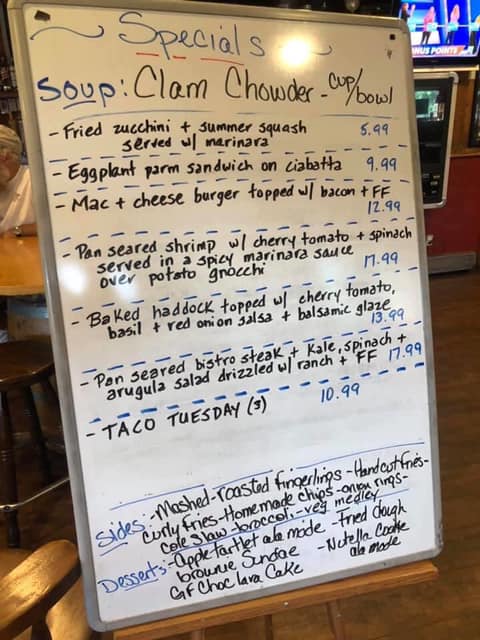 NUS POINTE
~ Specials ~
Soup: Clam Chowder - cup/bowl
- Fried zucchini + summer squash
served w/ marinara 8.99
- Eggplant parm sandwich on ciabatta 9.99
- Mac + cheese burger topped w/ bacon + FF
12.99
- Pan seared shrimp w/ cherry tomato + spinach
served in a spicy marinara sauce
over potato gnocchi 17.99
- Baked haddock topped w/ cherry tomato,
basil + red onion salsa + balsamic glaze
13.99
- Pan seared bistro steak + kale, spinach +
arugula salad drizzled w/ ranch + FF 17.99
- TACO TUESDAY (3) 10.99
Sides: - Mashed - roasted fingerlings - Handcut fries -
curly fries - Homemade chips - onion rings -
cole slaw - broccoli - veg medley
Desserts: - Apple tartlet ala mode - Fried dough
brownie Sundae - Nutella Cookie
ala mode
GF Choc lava Cake